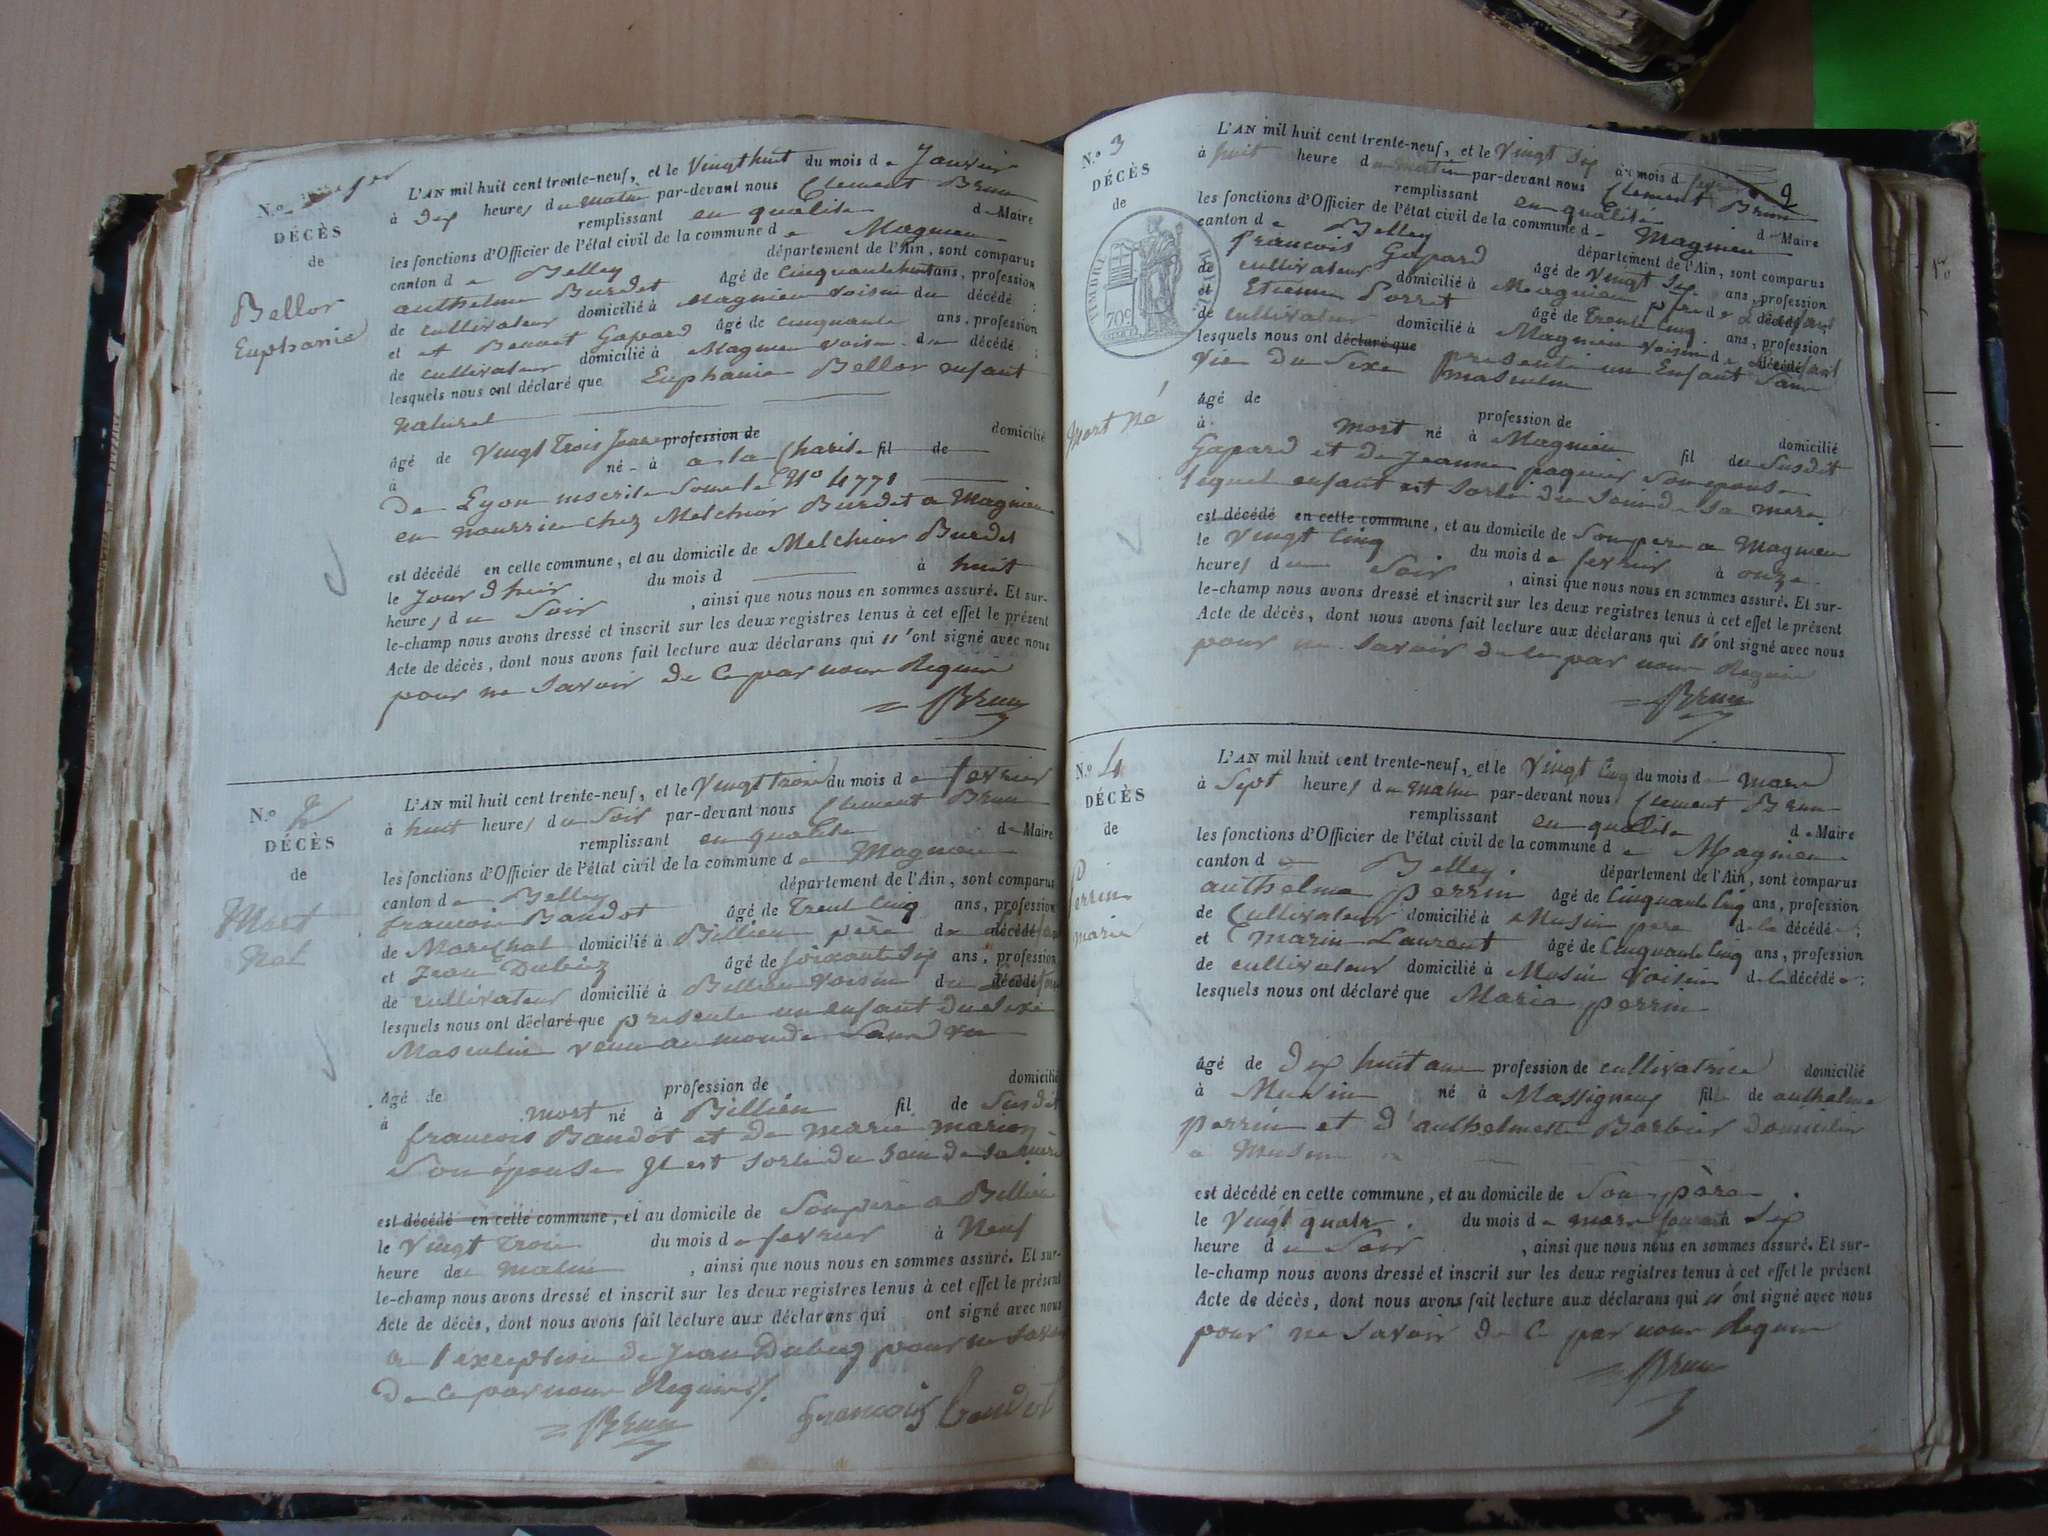 N.o 1er
DÉCÈS
de
Bellor
Euphanie
L'AN mil huit cent trente-neuf, et le Vingt huit du mois de Janvier
à Dix heures du matin par-devant nous Clement Brun
remplissant en qualité de Maire
les fonctions d'Officier de l'état civil de la commune de Magnieu
canton de Belley département de l'Ain, sont comparus
authelme Burdet âgé de Cinquante huit ans, profession
de cultivateur domicilié à Magnieu voisin du décédé ;
et et Benoit Gapard âgé de cinquante ans, profession
de cultivateur domicilié à Magnieu voisin du décédé ;
lesquels nous ont déclaré que Euphanie Bellor enfant
naturel
âgé de Vingt Trois Jours profession de domicilié
à né à a la Charité fil de
De Lyon inscrite sous le No 4771
en nourrice chez Melchior Burdet a Magnieu
est décédé en cette commune, et au domicile de Melchior Burdet
le Jour d'hier du mois d à huit
heures du Soir , ainsi que nous nous en sommes assuré. Et sur-
le-champ nous avons dressé et inscrit sur les deux registres tenus à cet effet le présent
Acte de décès, dont nous avons fait lecture aux déclarans qui n'ont signé avec nous
pour ne Savoir de Ce par nous Requis
Brun
N.o 2
DÉCÈS
de
Mort
Né
L'AN mil huit cent trente-neuf, et le Vingt trois du mois de fevrier
à huit heures du Soir par-devant nous Clement Brun
remplissant en qualité de Maire
les fonctions d'Officier de l'état civil de la commune de Magnieu
canton de Belley département de l'Ain, sont comparus
francois Baudot âgé de Trent Cinq ans, profession
de Marechal domicilié à Billieu père de décédé
et Jean Dubuz âgé de Soixante Dix ans, profession
de cultivateur domicilié à Billieu voisin du décédé
lesquels nous ont déclaré que presenté un enfant du Sexe
Masculin venu au monde Sans vie
âgé de profession de domicilié
à mort né à Billieu fil de Susdit
francois Baudot et de marie marion
Son épouse Il est Sorti du Sein de Sa mère
est décédé en cette commune, et au domicile de Son père a Billieu
le Vingt Trois du mois de fevrier à Neuf
heure de matin , ainsi que nous nous en sommes assuré. Et sur-
le-champ nous avons dressé et inscrit sur les deux registres tenus à cet effet le présent
Acte de décès, dont nous avons fait lecture aux déclarans qui ont signé avec nous
a l'exception de Jean Dubuz pour ne Savoir
De Ce par nous Requis.
Brun francois Baudot
2
N.o 3
DÉCÈS
de
TIMBRE ROYAL
70c
Mort Né
L'AN mil huit cent trente-neuf, et le Vingt Six du mois d fevrier
à huit heure du matin par-devant nous Clement Brun
remplissant en qualité de Maire
les fonctions d'Officier de l'état civil de la commune de Magnieu
canton de Belley département de l'Ain, sont comparus
francois Gapard âgé de Vingt Six ans, profession
de cultivateur domicilié à Magnieu père de L'enfant décédé ;
et Etienne Porret âgé de Trente Cinq ans, profession
de cultivateur domicilié à Magnieu voisin de L'enfant décédé
lesquels nous ont déclaré que presenté un Enfant Sans
Vie du Sexe masculin
âgé de profession de domicilié
à mort né à Magnieu fil de Susdit
Gapard et de Jeanne paquier Son epouse
lequel enfant est Sorti du Sein de Sa mere.
est décédé en cette commune, et au domicile de Son père a Magnieu
le Vingt Cinq du mois de fevrier à onze
heures du Soir , ainsi que nous nous en sommes assuré. Et sur-
le-champ nous avons dressé et inscrit sur les deux registres tenus à cet effet le présent
Acte de décès, dont nous avons fait lecture aux déclarans qui n'ont signé avec nous
pour ne Savoir de Ce par nous Requis
Brun
N.o 4
DÉCÈS
de
Perrin
marie
L'AN mil huit cent trente-neuf, et le Vingt Cinq du mois de Mars
à Sept heures du matin par-devant nous Clement Brun
remplissant en qualité de Maire
les fonctions d'Officier de l'état civil de la commune de Magnieu
canton de Belley. département de l'Ain, sont comparus
authelme perrin âgé de Cinquante Cinq ans, profession
de Cultivateur domicilié à Musin père de la décédée ;
et Marin Laurent âgé de Cinquante Cinq ans, profession
de cultivateur domicilié à Musin Voisin de la décédée ;
lesquels nous ont déclaré que Marie perrin
âgé de Dix huit ans profession de cultivatrice domicilié
à Musin né à Massigneu fille de authelme
perrin et d'authelmette Barbier domicilié
a Musin
est décédé en cette commune, et au domicile de Son père.
le Vingt quatre. du mois de mars courant Dix
heure du Soir , ainsi que nous nous en sommes assuré. Et sur-
le-champ nous avons dressé et inscrit sur les deux registres tenus à cet effet le présent
Acte de décès, dont nous avons fait lecture aux déclarans qui n'ont signé avec nous
pour ne Savoir de Ce par nous Requis
Brun